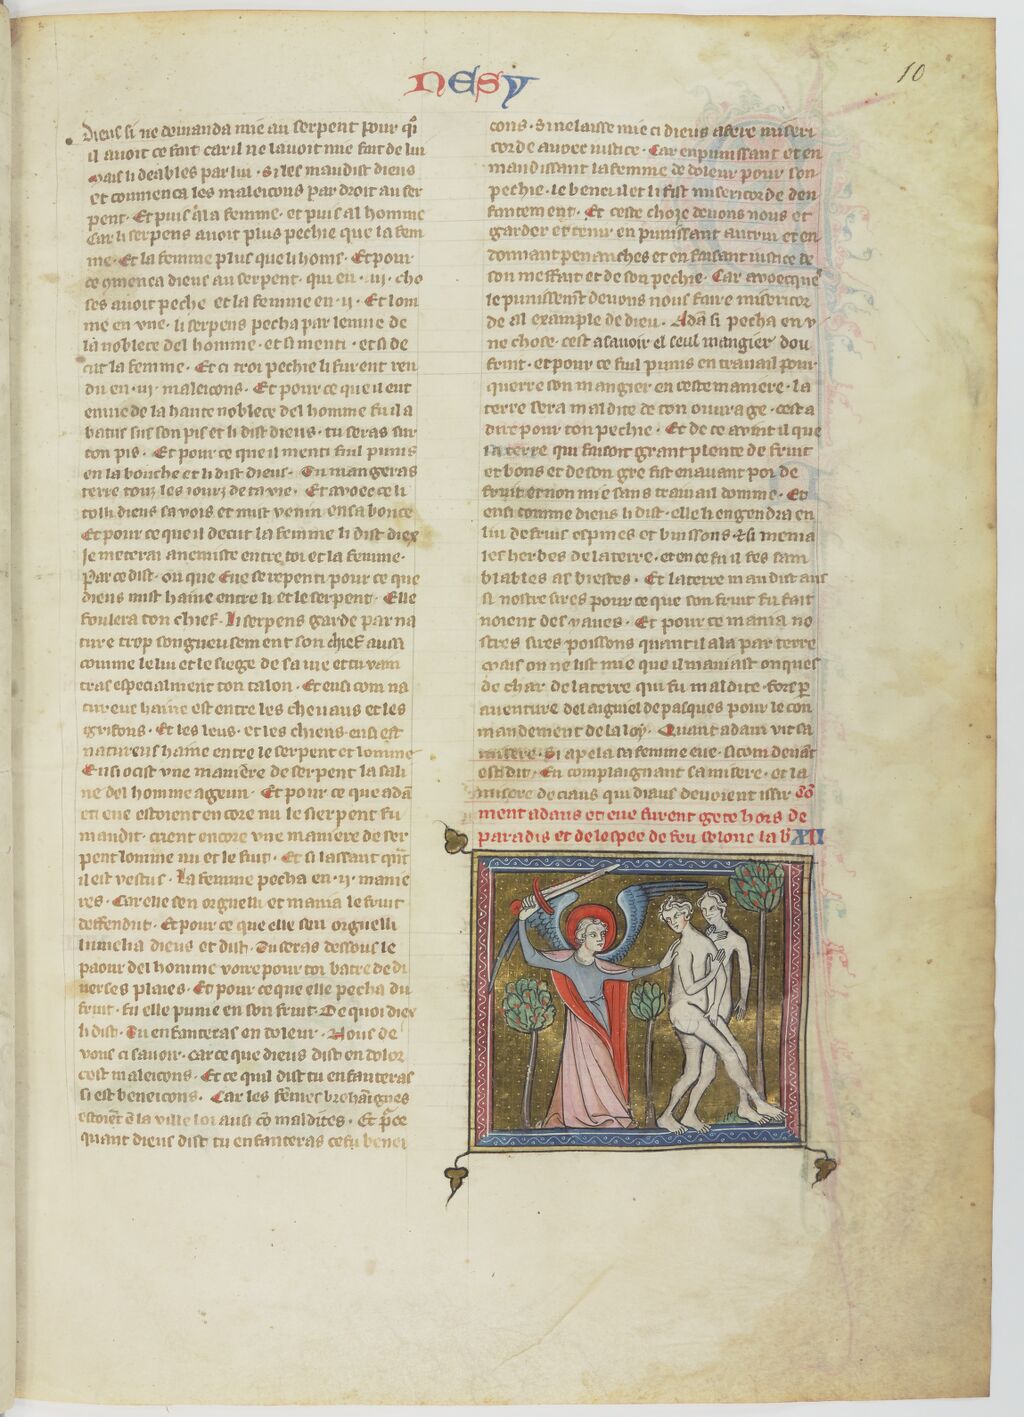 NESY
10
Dieus si ne demanda mie au serpent pour qͥ
il auoit ce fait car il ne lauoit mie fait de lui
mais li deables par lui · si les maudist dieus
et coumenca les maleicons par droit au ser
pent · Et puis a la femme · et puis al homme
Car li serpens auoit plus pechie que la fem
me · Et la femme plus que li homs · Et pour
ce commenca dieus au serpent · qui en · iij · cho
ses auoit peche et la femme en · ij · Et lom
me en vne · li serpens pecha par lenuie de
la noblece del homme · et si menti · et si de
cut la femme · Et ci troi pechie li furent ren
du en · iij · maleicons · Et pour ce que il eut
enuie de la haute noblece del homme fu il a
batus sus son pis et li dist dieus · tu seras sur
ton pis · Et pour ce que il menti fu il punis
en la bouche et li dist dieus · Tu mangeras
terre touz les iours de ta vie · Et auoec ce li
tolli dieus sa vois et mist venin en sa bouce
Et pour ce que il decut la femme li dist diex
Je meterai anemiste entre toi et la femme ·
Par ce dist · on que Eue se repenti pour ce que
dieus mist haine entre li et le serpent · Elle
foulera ton chief · li serpens garde par na
ture trop songneusement son chief aussi
comme le lui et le siege de sa uie et tu uain
tras especialment ton talon · Et ensi com na
tureue haine est entre les cheuaus et les
grifons · Et les leus · et les chiens ensi est
natureus haine entre le serpent et lomme
Ensi ocist vne maniere de serpent la sali
ne del homme a geun · Et pour ce que adā
et eue estoient encore nu le serpent fu
maudit · crient encore vne maniere de ser
pent lomme nu et le fuit · Et si lassaut qn̄t
il est vestus · La femme pecha en · ij · manie
res · Car elle sen orguelli et mania le fruit
deffendut · Et pour ce que elle sen orguelli
lumelia dieus et dist · Tu seras dessous le
paour del homme voire pour toi batre de di
uerses plaies · Et pour ce que elle pecha du
fruit · fu elle punie en son fruit · De quoi diex
li dist · Tu enfanteras en doleur · Nous de
vons ci sauoir · car ce que dieus dist en dolor
cest maleicons · Et ce quil dist tu enfanteras
si est beneicons · Car les femmes brehaignes
estoient en la ville loi aussi com maldites · Et pour ce
quant dieus dist tu enfanteras ce fu benei
cons · Si ne laisse mie ci dieus a fere miseri
corde auoec iustice · Car en punissant et en
maudissant la femme de doleur pour son
pechie · le beneui et li fist misericorde den
fantement · Et ceste chose deuons nous et
garder et tenir en punissant autrui et en
donnant penanches et en faisant iustice de
son meffait et de son pechie · Car auoecques
le punissemt deuons nous faire misericor
de al example de dieu · Adā si pecha en v
ne chose · cest a sauoir el seul mangier dou
fruit · et pour ce fu il punis en trauail pour
querre son mangier en ceste maniere · la
terre sera maldite de ton ouurage · cest a
dire pour ton pechie · Et de ce auint il que
la terre qui faisoit grant plente de fruit
et bons et de son gre fist en auant poi de
fruit et non mie sans trauail domme · Et
ensi comme dieus li dist · elle li engendra en
liu de fruis espines et buissons · Et si menia
les herbes de la terre · et en ce fu il fes sam
blables as biestes · Et la terre maudist aus
si nostre sires pour ce que son fruit fu fait
noient des yaues · Et pour ce mania no
stres sires poissons quant il ala par terre
mais on ne list mie que il maniast onques
de char de la terre qui fu maldite · fors p̄
auenture del aigniel de pasques pour le con
mandement de la loy · Quant adam vit sa
misere · Si apela sa femme eue · si com deuāt
est dit · En complaignant sa misere · et la
misere de ciaus qui diaus deuoient issir Com
ment adans et eue furent gete hors de
paradis et de lespee de feu selonc la b XII